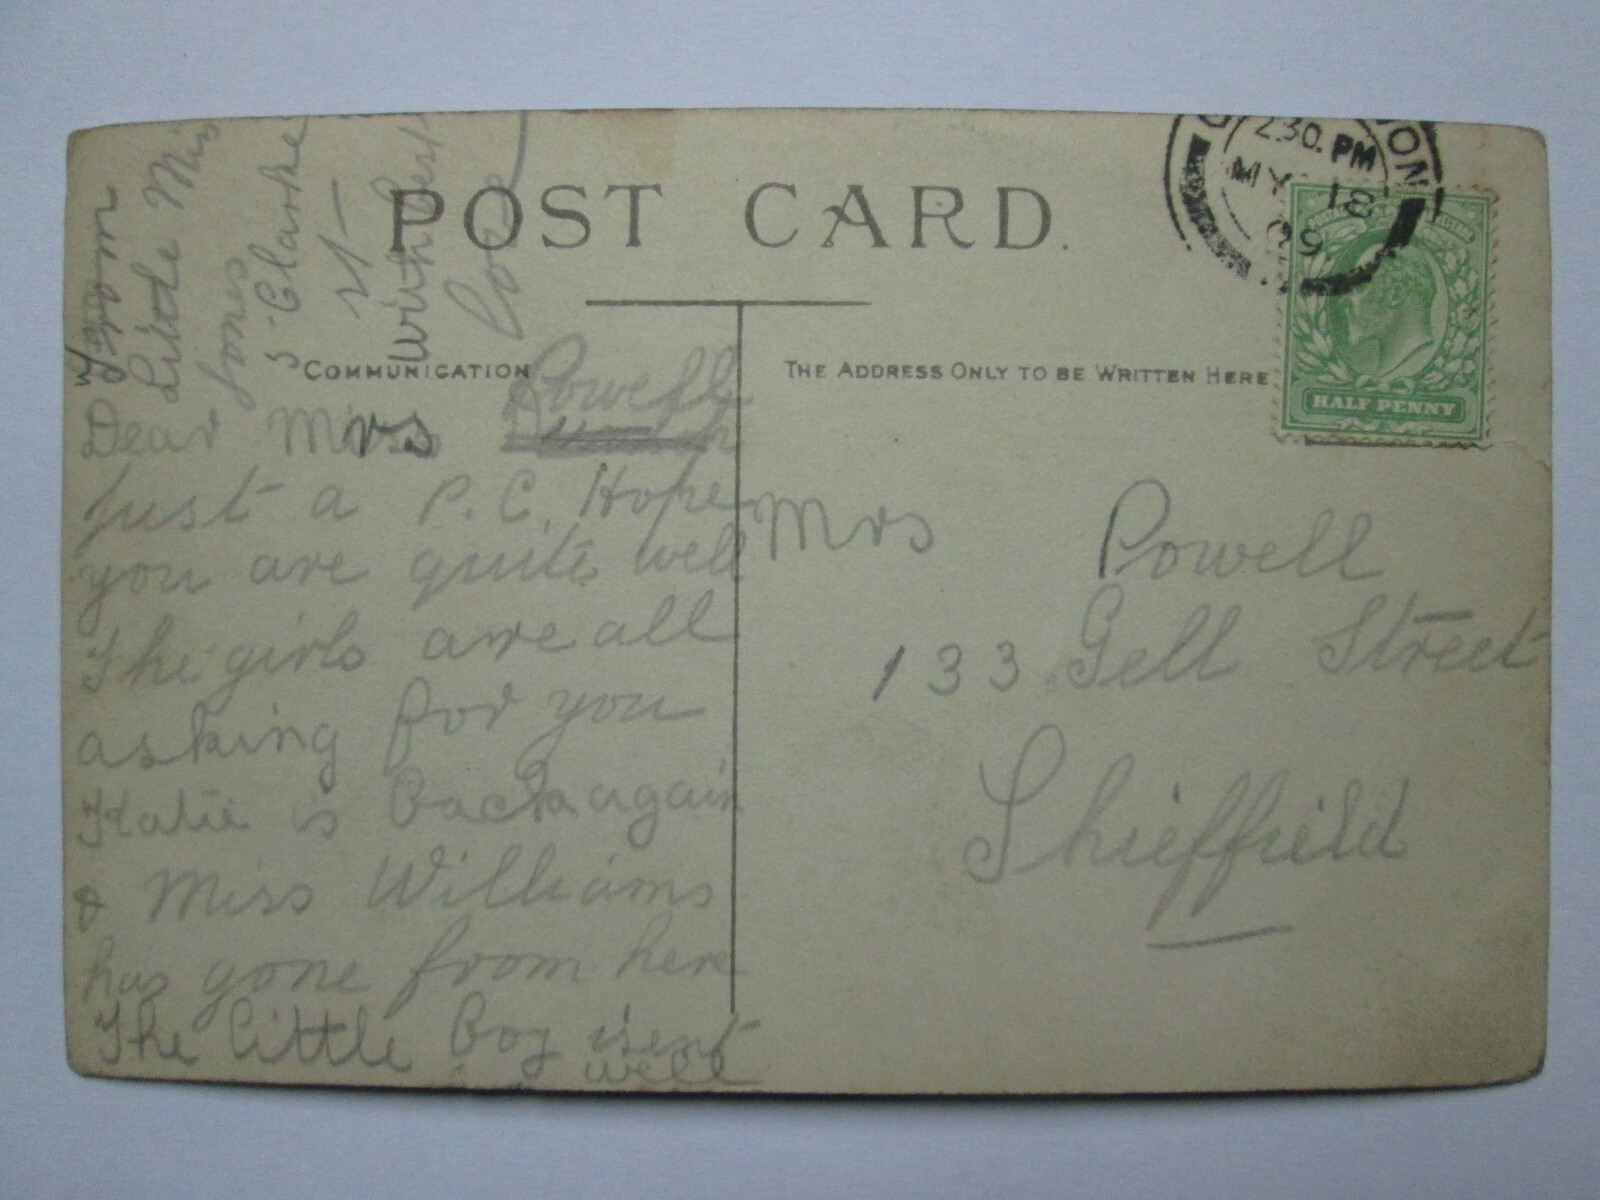 POST CARD.
COMMUNICATION
THE ADDRESS ONLY TO BE WRITTEN HERE
2.30. PM
MY 18
09
HALF PENNY
Dear Mrs Powell
Just a P.C. Hope
you are quite well
The girls are all
asking for you
Katie is back again
& Miss Williams
has gone from here
The little boy isent
well
from
Little Miss
Jones
5 Clarke
St
Love
Mrs Powell
133 Gell Street
Shieffield